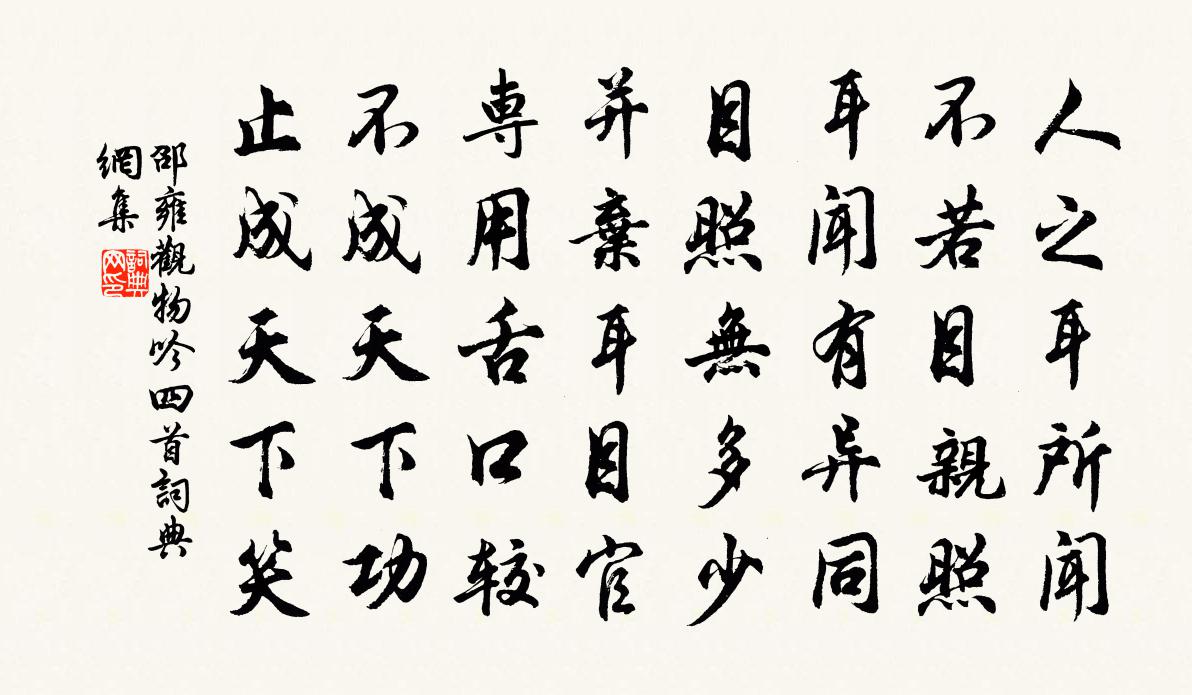 人之耳所聞
不若目親照
耳聞有异同
目照無多少
并棄耳目官
専用舌口較
不成天下功
止成天下笑
邵雍觀物吟四首詞典
網集
詞典
网印